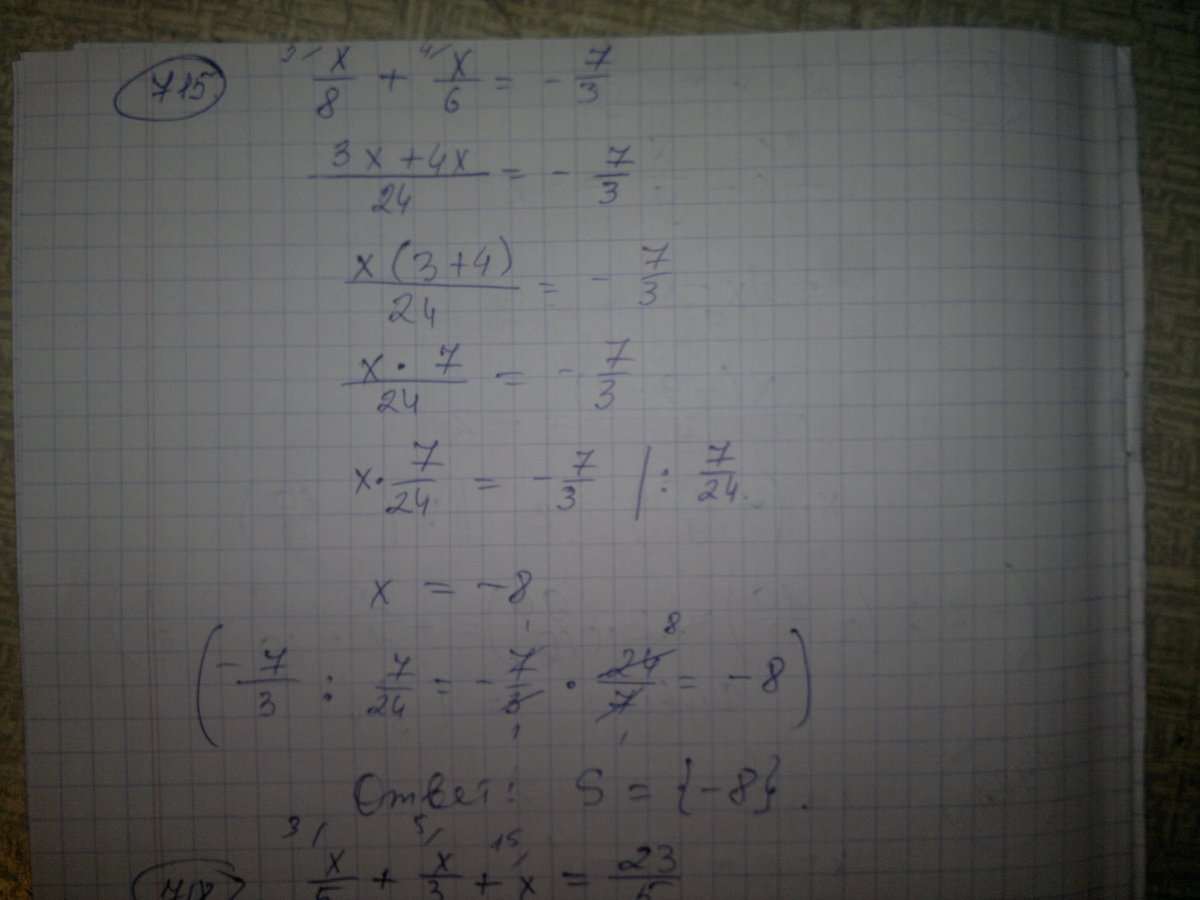 715 3/ x/8 + 4/ x/6 = - 7/3
3x + 4x / 24 = - 7/3
x (3 + 4) / 24 = - 7/3
x · 7 / 24 = - 7/3
x · 7/24 = - 7/3 | : 7/24
x = -8
( - 7/3 : 7/24 = - 7/3 · 24/7 = -8 )
Ответ: S = {-8}.
3/ x/5 + 5/ x/3 + 15/ x = 23/5